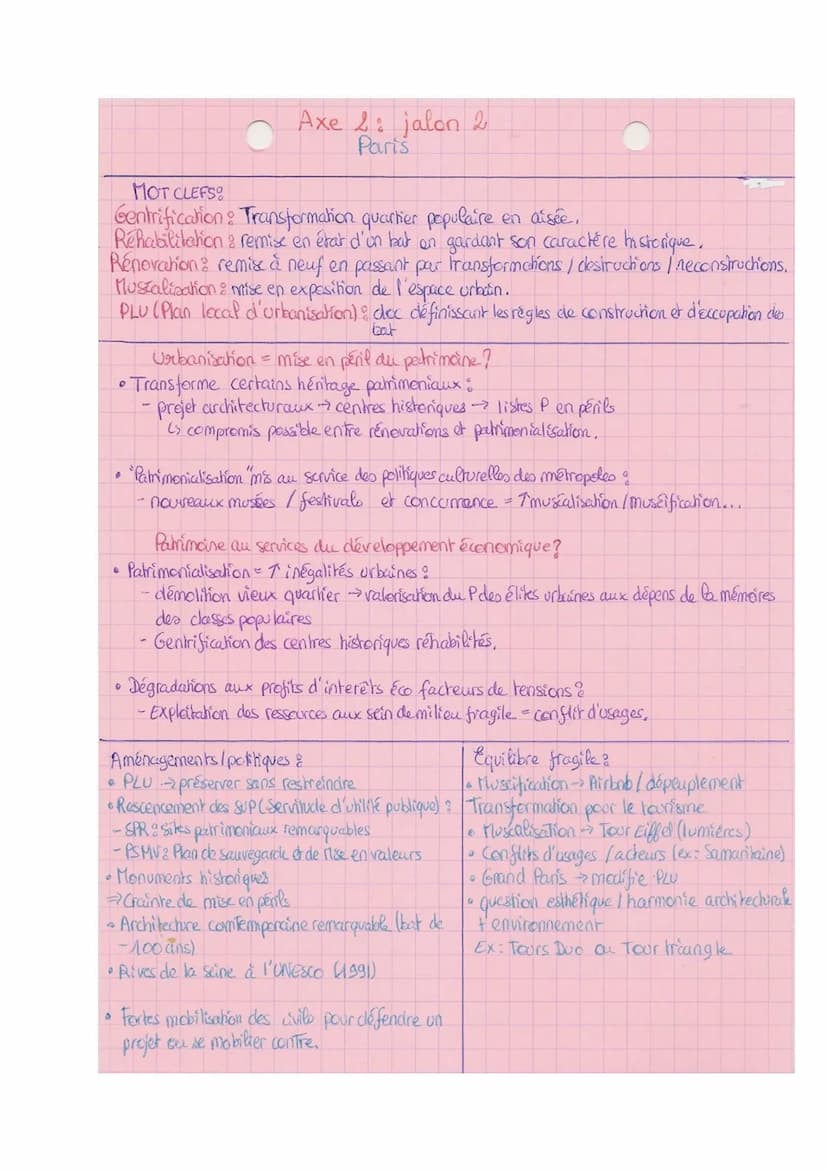 Axe 2 : jalon 2
Paris
MOT CLEFS :
Gentrification : Transformation quartier populaire en aisée.
Réhabilitation : remise en état d'un bat en gardant son caractère historique.
Rénovation : remise à neuf en passant par transformations / destructions / reconstructions.
Muséalisation : mise en exposition de l'espace urbain.
PLU (Plan local d'urbanisation) : doc définissant les règles de construction et d'occupation des
bat
Urbanisation = mise en péril du patrimoine ?
• Transforme certains héritage patrimoniaux :
- projet architecturaux → centres historiques → listes P en périls
↳ compromis possible entre rénovations et patrimonialisation.
• "Patrimonialisation" mis au service des politiques culturelles des métropoles :
- nouveaux musées / festivals et concurrence = ↑ muséalisation / muséification...
Patrimoine au services du développement économique ?
• Patrimonialisation = ↑ inégalités urbaines :
- démolition vieux quartier → valorisation du P des élites urbaines aux dépens de la mémoires
des classes populaires
- Gentrification des centres historiques réhabilités.
• Dégradations aux profits d'interêts éco facteurs de tensions :
- Exploitation des ressources aux sein de milieu fragile = conflit d'usages.
Aménagements / politiques :
• PLU → préserver sans restreindre
• Rescencement des SUP (Servitude d'utilité publique) :
- SPR : Sites patrimoniaux remarquables
- PSMV : Plan de sauvegarde et de mise en valeurs
• Monuments historiques
⇒ Crainte de mise en périls
• Architecture comtemporaine remarquable (bat de
-100 ans)
• Rives de la seine à l'UNESCO (1991)
• Fortes mobilisation des civils pour défendre un
projet ou se mobilier contre.
Equilibre fragile :
• Muséification → Airbnb / dépeuplement
Transformation pour le tourisme
• Muséalisation → Tour Eiffel (lumières)
• Conflits d'usages / acteurs (ex : Samaritaine)
• Grand Paris → modifie PLU
• question esthétique / harmonie architecturale
+ environnement
Ex : Tours Duo ou Tour triangle